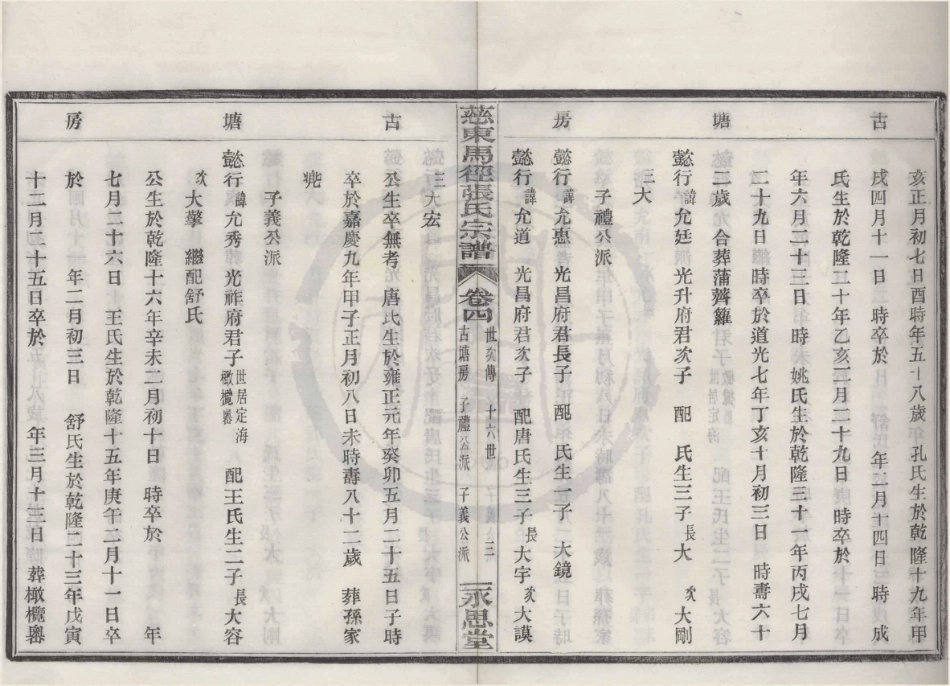 古 塘 房
亥正月初七日酉時年五十八歲孔氏生於乾隆十九年甲
戌四月十一日 時卒於 年二月十四日 時成
氏生於乾隆二十年乙亥三月二十九日 時卒於
年六月二十三日 時未姚氏生於乾隆三十一年丙戌七月
二十九日 時卒於道光七年丁亥十月初三日 時壽六十
二歲合葬蒲薺籮
懿行諱允廷 光升府君次子 配 氏生三子長大 次大剛
三大
子禮公派
懿行諱允惠 光昌府君長子 配 氏生一子 大鏡
懿行諱允道 光昌府君次子 配唐氏生三子長大宇次大謨
慈東馬徑張氏宗譜 卷四 世次傳 十六世 古塘房 子禮公派 子義公派 一 永思堂
古 塘 房
三大宏
公生卒無考 唐氏生於雍正元年癸卯五月二十五日子時
卒於嘉慶九年甲子正月初八日未時壽八十二歲 葬孫家
兠
子義公派
懿行諱允秀 光祚府君子世居定海橄欖嶴 配王氏生二子長大容
次大擎 繼配舒氏
公生於乾隆十六年辛未二月初十日 時卒於 年
七月二十六日 王氏生於乾隆十五年庚午二月十一日卒
於 年二月初三日 舒氏生於乾隆二十三年戊寅
十二月二十五日卒於 年三月十三日 葬橄欖嶴